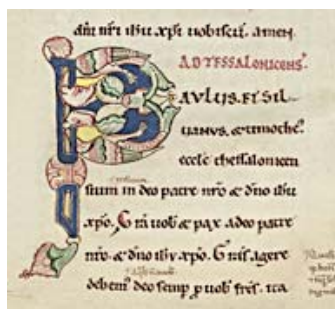 dn̄i nr̄i ihu xp̄i uobiscū. amen.
AD TESSALONICENS̄
PAULUS. ET SIL
uanus. & timothe.
eccłe thessalonicen
sium in deo patre nr̄o & dn̄o ihu
xp̄o. Grā uob̄ & pax a deo patre
nr̄o. & dn̄o ihu xp̄o. Gratias agere
debem' deo semp̄ p̱ uob̄ fr̄s. ita